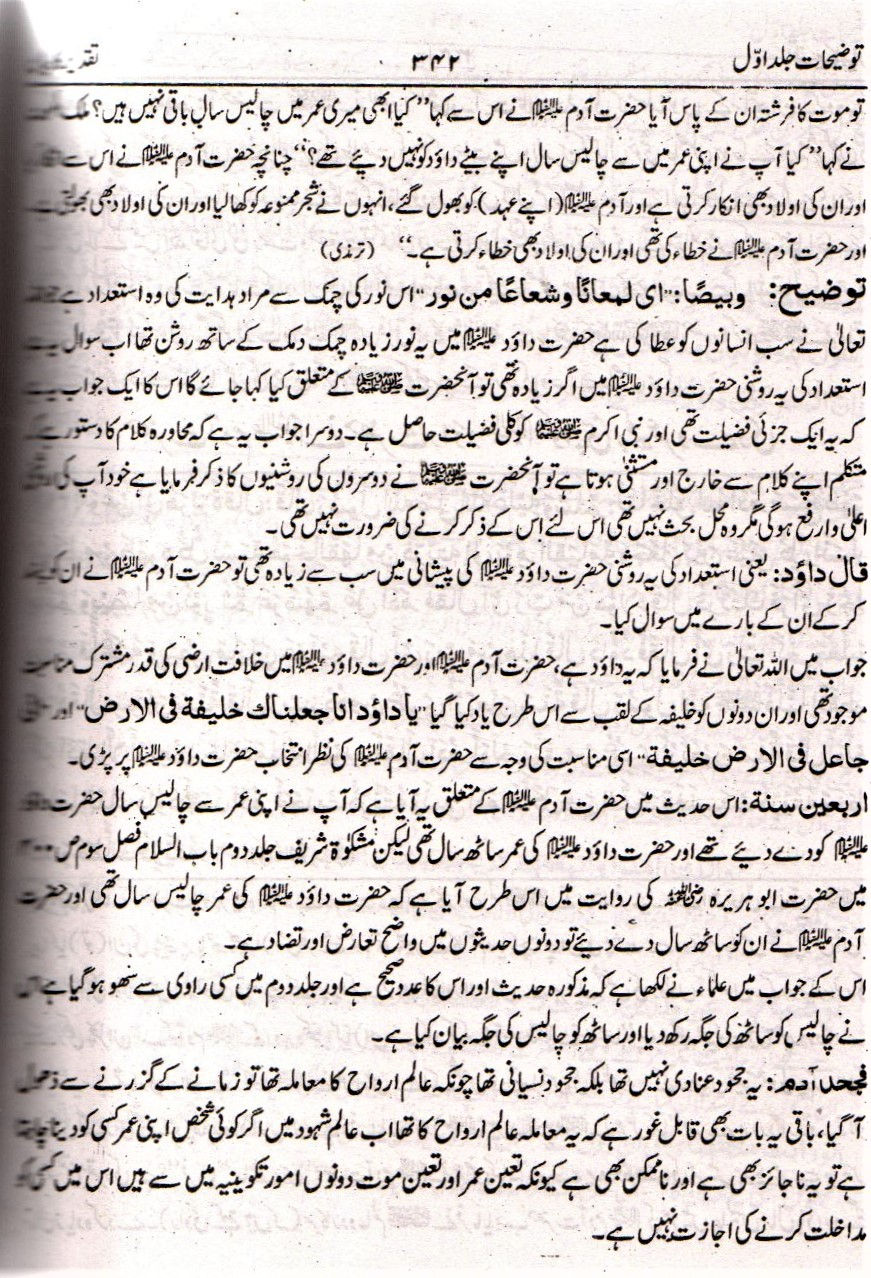 توضیحات جلد اوّل ۳۴۲
تو موت کا فرشتہ ان کے پاس آیا حضرت آدم علیہ السلام نے اس سے کہا ”کیا ابھی میری عمر میں چالیس سال باقی نہیں ہیں؟
نے کہا ”کیا آپ نے اپنی عمر میں سے چالیس سال اپنے بیٹے داؤد کو نہیں دیئے تھے؟“ چنانچہ حضرت آدم علیہ السلام نے اس سے
اور ان کی اولاد بھی انکار کرتی ہے اور آدم علیہ السلام (اپنے عہد) کو بھول گئے، انہوں نے شجر ممنوعہ کو کھا لیا اور ان کی اولاد بھی بھولتی
اور حضرت آدم علیہ السلام نے خطاء کی تھی اور ان کی اولاد بھی خطاء کرتی ہے۔“ (ترمذی)
توضیح: وبیصًا: ”ای لمعانًا وشعاعًا من نور“ اس نور کی چمک سے مراد ہدایت کی وہ استعداد ہے
تعالیٰ نے سب انسانوں کو عطا کی ہے حضرت داؤد علیہ السلام میں یہ نور زیادہ چمک دمک کے ساتھ روشن تھا اب سوال یہ
استعداد کی یہ روشنی حضرت داؤد علیہ السلام میں اگر زیادہ تھی تو آنحضرت ﷺ کے متعلق کیا کہا جائے گا اس کا ایک جواب یہ
کہ یہ ایک جزئی فضیلت تھی اور نبی اکرم ﷺ کو کلی فضیلت حاصل ہے۔ دوسرا جواب یہ ہے کہ محاورہ کلام کا دستور ہے
متکلم اپنے کلام سے خارج اور مستثنیٰ ہوتا ہے تو آنحضرت ﷺ نے دوسروں کی روشنیوں کا ذکر فرمایا ہے خود آپ کی
اعلیٰ وارفع ہوگی مگر وہ محل بحث نہیں تھی اس لئے اس کے ذکر کرنے کی ضرورت نہیں تھی۔
قال داؤد: یعنی استعداد کی یہ روشنی حضرت داؤد علیہ السلام کی پیشانی میں سب سے زیادہ تھی تو حضرت آدم علیہ السلام نے ان کو
کر کے ان کے بارے میں سوال کیا۔
جواب میں اللہ تعالیٰ نے فرمایا کہ یہ داؤد ہے، حضرت آدم علیہ السلام اور حضرت داؤد علیہ السلام میں خلافت ارضی کی قدر مشترک مناسبت
موجود تھی اور ان دونوں کو خلیفہ کے لقب سے اس طرح یاد کیا گیا ”یا داؤد انا جعلناك خليفة في الارض“ اور
جاعل فی الارض خليفة“ اسی مناسبت کی وجہ سے حضرت آدم علیہ السلام کی نظر انتخاب حضرت داؤد علیہ السلام پر پڑی۔
اربعین سنة: اس حدیث میں حضرت آدم علیہ السلام کے متعلق یہ آیا ہے کہ آپ نے اپنی عمر سے چالیس سال حضرت داؤد
علیہ السلام کو دے دیئے تھے اور حضرت داؤد علیہ السلام کی عمر ساٹھ سال تھی لیکن مشکوٰۃ شریف جلد دوم باب السلام فصل سوم ص
میں حضرت ابو ہریرہ رضی اللہ عنہ کی روایت میں اس طرح آیا ہے کہ حضرت داؤد علیہ السلام کی عمر چالیس سال تھی اور حضرت
آدم علیہ السلام نے ان کو ساٹھ سال دے دیئے تو دونوں حدیثوں میں واضح تعارض اور تضاد ہے۔
اس کے جواب میں علماء نے لکھا ہے کہ مذکورہ حدیث اور اس کا عدد صحیح ہے اور جلد دوم میں کسی راوی سے سھو ہو گیا ہے
نے چالیس کو ساٹھ کی جگہ رکھ دیا اور ساٹھ کو چالیس کی جگہ بیان کیا ہے۔
فجحد آدم: یہ جحود عنادی نہیں تھا بلکہ جحود نسیانی تھا چونکہ عالم ارواح کا معاملہ تھا تو زمانے کے گزرنے سے ذھول
آ گیا، باقی یہ بات بھی قابل غور ہے کہ یہ معاملہ عالم ارواح کا تھا اب عالم شہود میں اگر کوئی شخص اپنی عمر کسی کو دینا چاہتا
ہے تو یہ ناجائز بھی ہے اور ناممکن بھی ہے کیونکہ تعین عمر اور تعین موت دونوں امور تکوینیہ میں سے ہیں اس میں کسی کو
مداخلت کرنے کی اجازت نہیں ہے۔